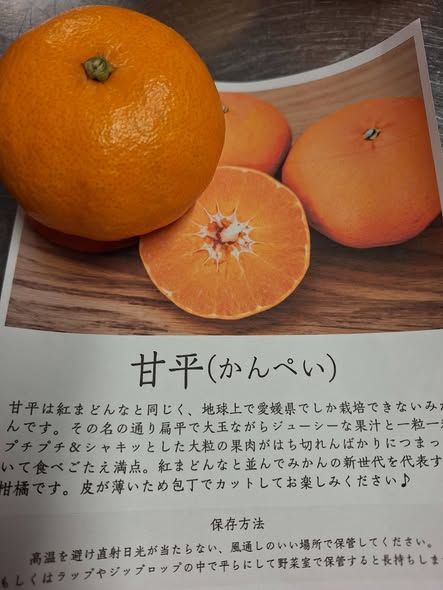 甘平(かんぺい)
甘平は紅まどんなと同じく、地球上で愛媛県でしか栽培できないみか
んです。その名の通り扁平で大玉ながらジューシーな果汁と一粒一
プチプチ&シャキッとした大粒の果肉がはち切れんばかりにつまっ
いて食べごたえ満点。紅まどんなと並んでみかんの新世代を代表す
柑橘です。皮が薄いため包丁でカットしてお楽しみください♪
保存方法
高温を避け直射日光が当たらない、風通しのいい場所で保管してください。
もしくはラップやジップロップの中で平らにして野菜室で保管すると長持ちしま